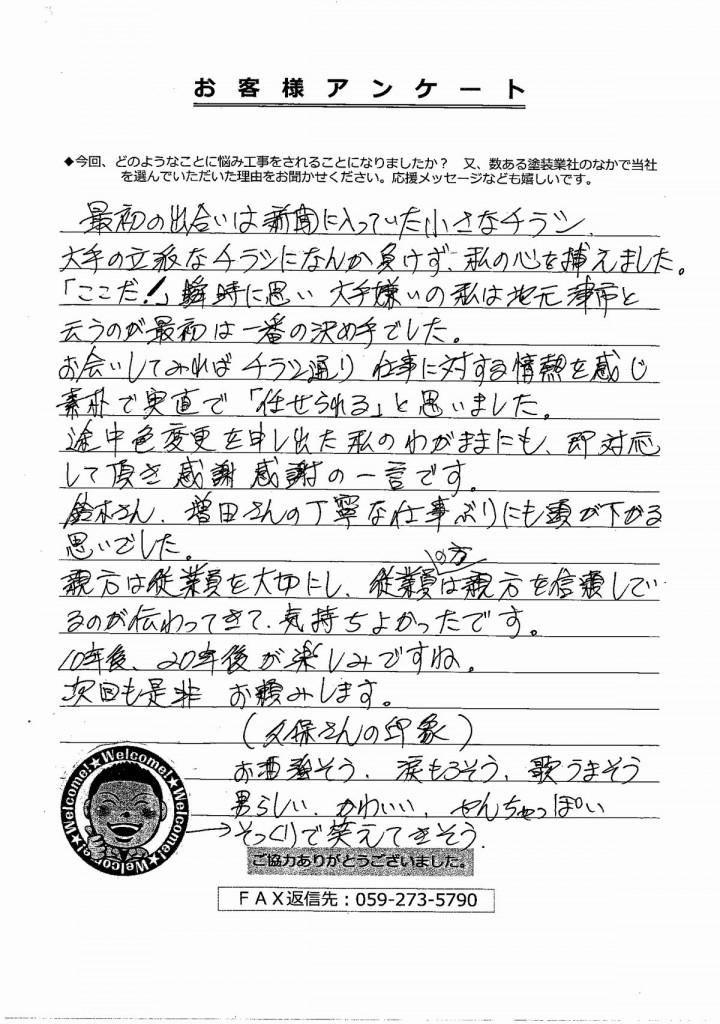 お客様アンケート
◆今回、どのようなことに悩み工事をされることになりましたか？　又、数ある塗装業社のなかで当社
を選んでいただいた理由をお聞かせください。応援メッセージなども嬉しいです。
最初の出合いは新聞に入っていた小さなチラシ、
大手の立派なチラシになんか負けず、私の心を捕えました。
「ここだ！」瞬時に思い 大手嫌いの私は地元津市と
云うのが最初は一番の決め手でした。
お会いしてみればチラシ通り 仕事に対する情熱を感じ
素朴で実直で「任せられる」と思いました。
途中色変更を申し出た私のわがままにも、即対応
して頂き感謝感謝の一言です。
鈴木さん、増田さんの丁寧な仕事ぶりにも頭が下がる
思いでした。
親方は従業員を大切にし、従業員の方は親方を信頼してい
るのが伝わってきて、気持ちよかったです。
10年後、20年後が楽しみですね。
次回も是非 お頼みします。
(久保さんの印象)
お酒強そう、涙もろそう、歌うまそう
男らしい、かわいい、やんちゃっぽい
→そっくりで笑えてきそう
Welcome!★Welcome!★Welcome!★Welcome!★
ご協力ありがとうございました。
ＦＡＸ返信先：059-273-5790